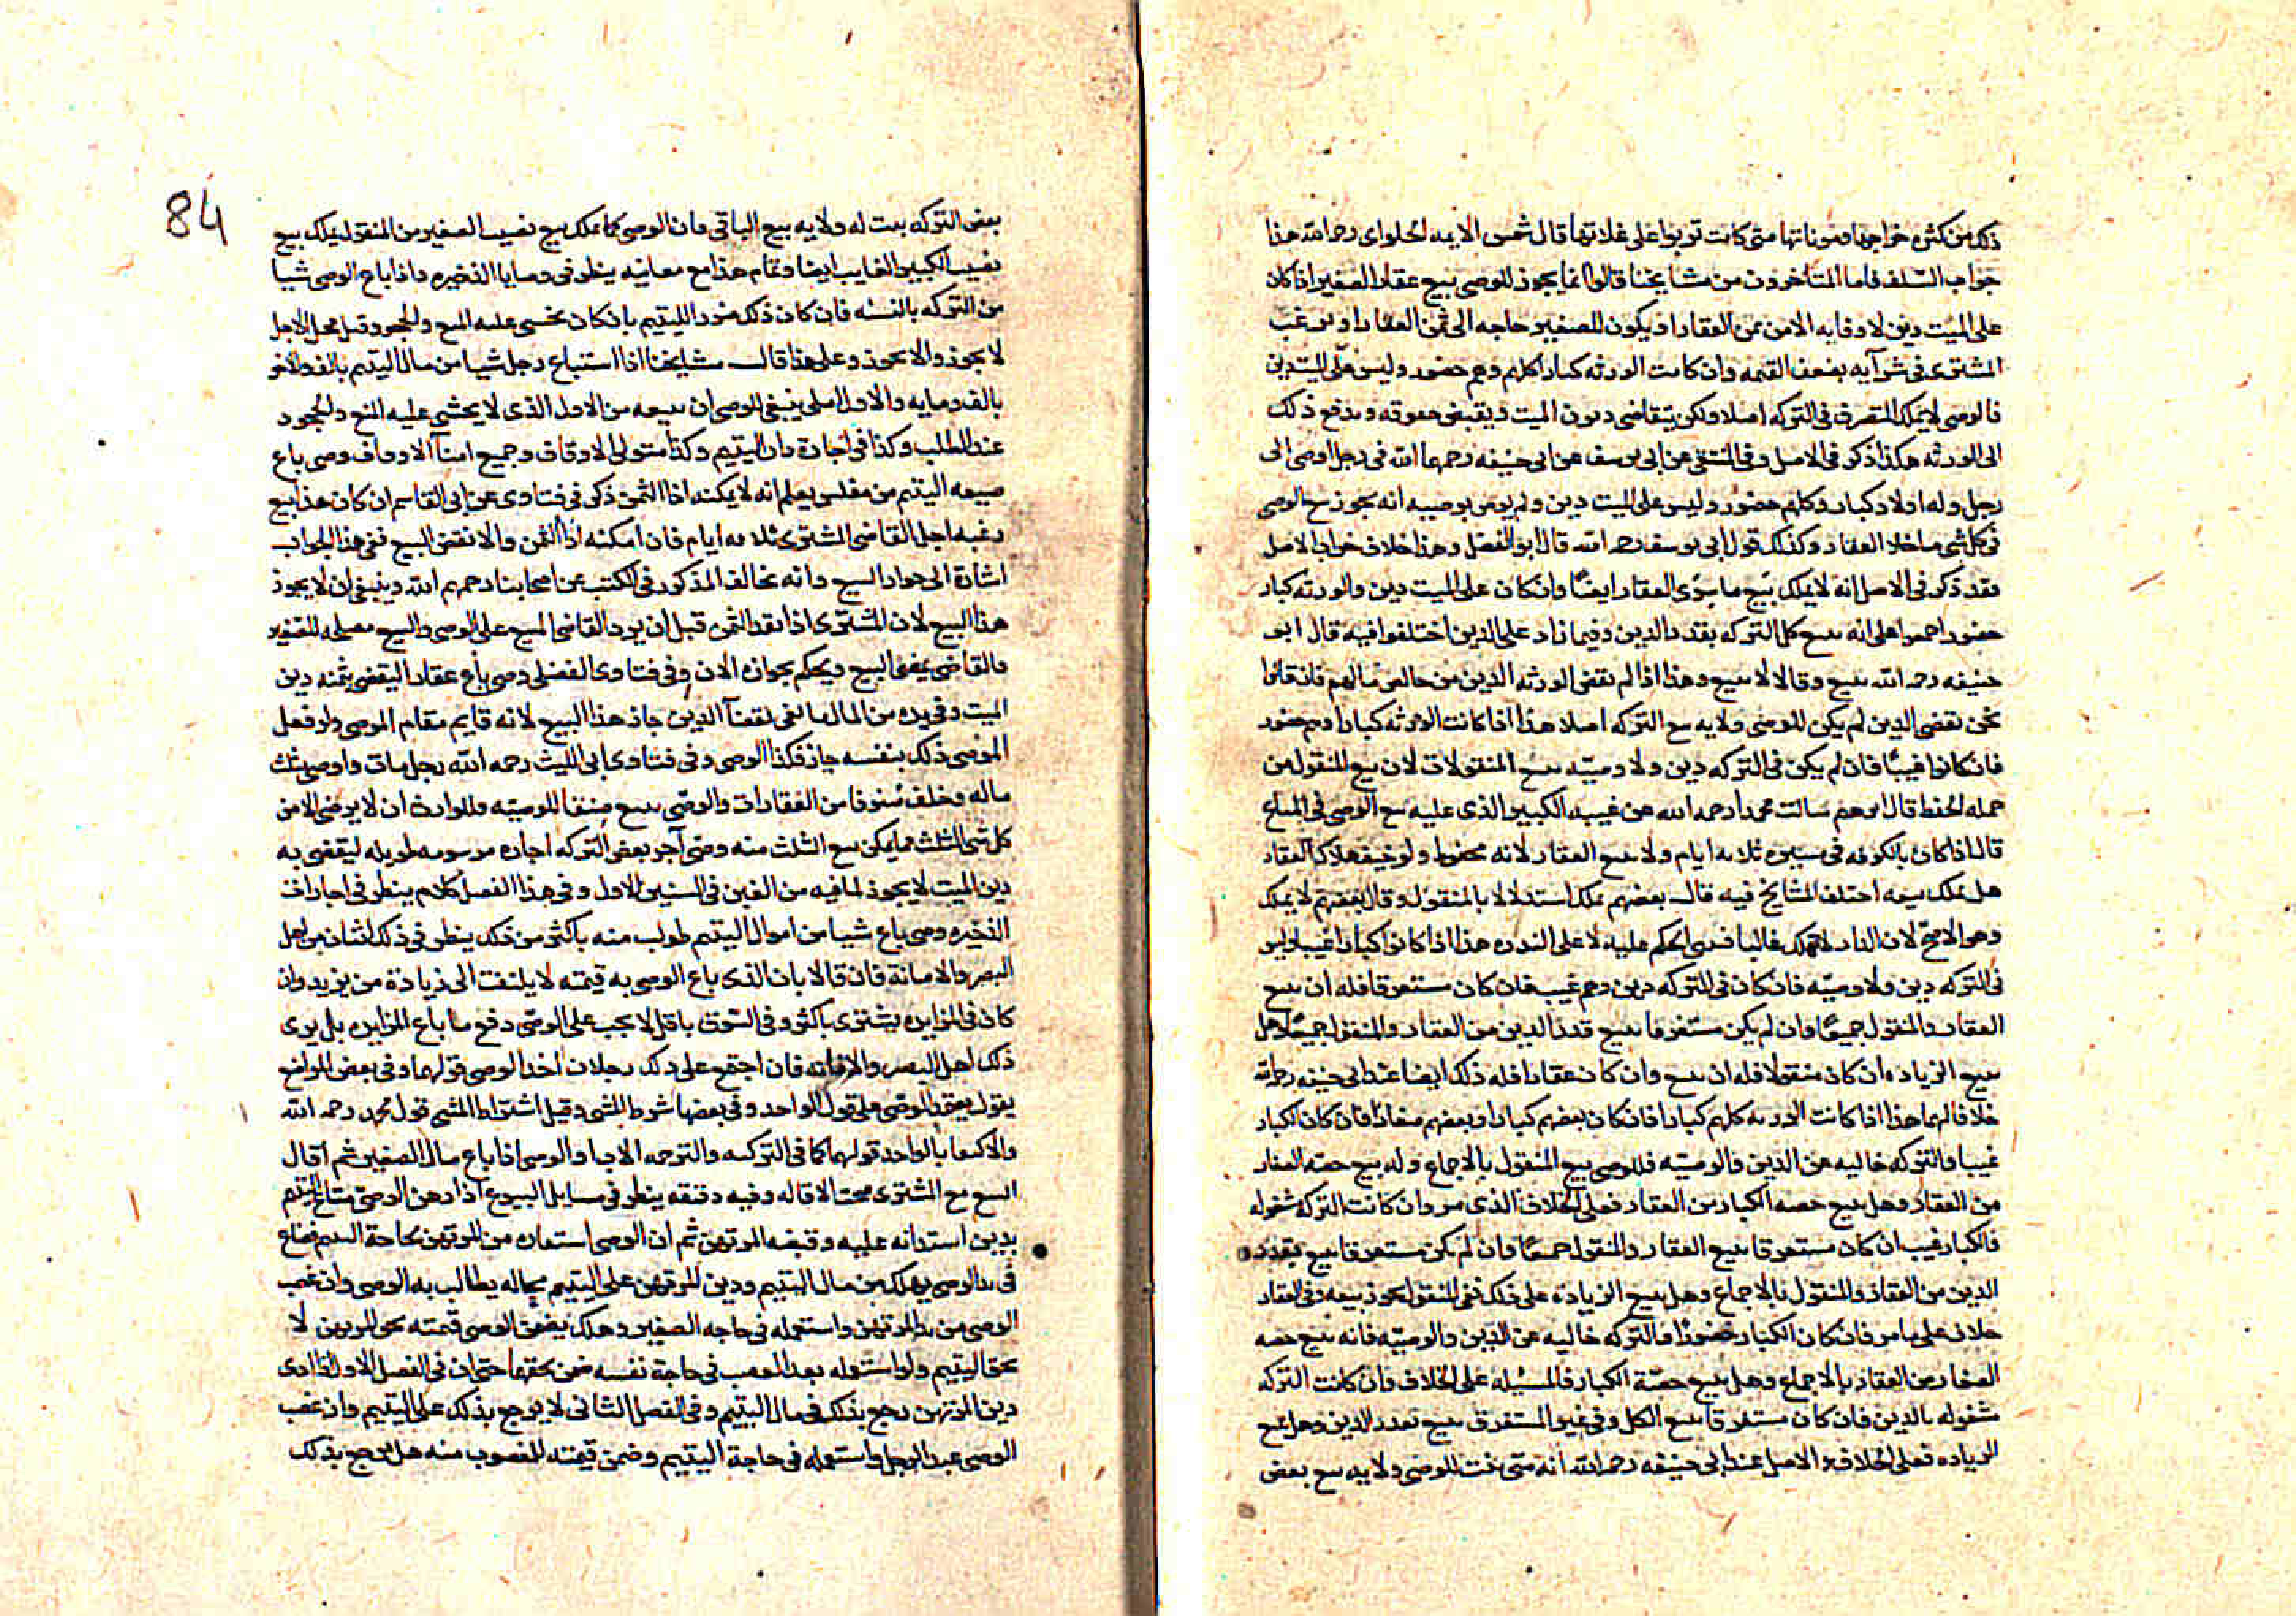 ذلك من كثره خراجها ومؤناتها متى كانت تربوا على غلاتها قال شمس الايمه الحلواى رحمه الله هذا
جواب السلف فاما المتاخرون من مشايخنا قالوا انما يجوز للوصى بيع عقار الصغير اذا كان
على الميت دين لا وفا به الا من ثمن العقار او يكون للصغير حاجه الى ثمن العقار او يرغب
المشترى فى شرآيه بضعف القيمه وان كانت الورثه كبارا كلهم وهم حضور وليس على الميت دين
فالوصى لا يملك التصرف فى التركه اصلا ولكن يتقاضى ديون الميت ويقبض حقوقه ويدفع ذلك
الى الورثه هكذا ذكر فى الاصل وفى المنتقى عن ابى يوسف عن ابى حنيفه رحمهما الله فى رجل اوصى الى
رجل وله اولاد كبار وكلهم حضور وليس على الميت دين ولم يوص بوصيه انه يجوز بيع الوصى
فى كل شى ما خلا العقار وكذلك قول ابى يوسف رحمه الله قال ابو الفضل وهذا خلاف جواب الاصل
وقد ذكر فى الاصل انه لا يملك بيع ما سوى العقار ايضا وان كان على الميت دين والورثه كبار
حضور اجمعوا على انه يبيع كل التركه بقدر الدين وفيما زاد على الدين اختلفوا فيه قال ابو
حنيفه رحمه الله يبيع وقالا لا يبيع وهذا اذا لم تقض الورثه الدين من خالص مالهم فان قالوا
نحن نقضى الدين لم يكن للوصى ولايه بيع التركه اصلا هذا اذا كانت الورثه كبارا وهم حضور
فان كانوا غيبا فان لم يكن فى التركه دين ولا وصيه يبيع المنقولات لان بيع المنقول من
جمله الحفظ قال ابرهم سالت محمدا رحمه الله عن غيبه الكبير الذى عليه بيع الوصى فى المتاع
قال اذا كان بالكوفه فى مسيره ثلاثه ايام ولا يبيع العقار لانه محفوظ ولو خيف هلاك العقار
هل يملك بيعه اختلف المشايخ فيه قال بعضهم يملك استدلالا بالمنقول وقال بعضهم لا يملك
وهو الاصح لان الدار لا تهلك غالبا فبنى الحكم عليه لا على الندره هذا اذا كانوا كبارا غيبا وليس
فى التركه دين ولا وصيه فان كان فى التركه دين وهم غيب فان كان مستغرقا فله ان يبيع
العقار والمنقول جميعا وان لم يكن مستغرقا يبيع قدر الدين من العقار والمنقول جميعا وهل
يبيع الزياده ان كان منقولا فله ان يبيع وان كان عقارا فله ذلك ايضا عند ابى حنيفه رحمه الله
خلافا لهما هذا اذا كانت الورثه كلهم كبارا فان كان بعضهم كبارا وبعضهم صغارا فان كان الكبار
غيبا والتركه خاليه عن الدين والوصيه فللوصى بيع المنقول بالاجماع وله بيع حصه الصغار
من العقار وهل يبيع حصه الكبار من العقار فعلى الخلاف الذى مر وان كانت التركه مشغوله
فالكبار غيب ان كان مستغرقا يبيع العقار والمنقول جميعا وان لم يكن مستغرقا يبيع بقدر
الدين من العقار والمنقول بالاجماع وهل يبيع الزيادة على ذلك ففى المنقول يجوز بيعه وفى العقار
خلاف على ما مر فان كان الكبار حضورا والتركه خاليه عن الدين والوصيه فانه يبيع حصه
الصغار من العقار بالاجماع وهل يبيع حصة الكبار فالمسئله على الخلاف وان كانت التركه
مشغوله بالدين فان كان مستغرقا يبيع الكل وفى غير المستغرق يبيع بقدر الدين وهل يبيع
الزياده فعلى الخلاف والاصل عند ابى حنيفه رحمه الله انه متى ثبت للوصى ولايه بيع بعض
بعض التركه يثبت له ولايه بيع الباقى فان الوصى كما يملك بيع نصيب الصغير من المنقول يملك بيع
نصيب الكبير الغايب ايضا وتمام هذا مع معانيه ينظر فى وصايا الذخيره واذا باع الوصى شيا
من التركه بالنسئه فان كان ذلك ضررا لليتيم بان كان يخشى عليه المنع والجحود قبل محل الاجل
لا يجوز والا يجوز وعلى هذا قالـ مشايخنا اذا استباع رجل شيا من مال اليتيم بالف والاخر
بالف ومايه والاول املى ينبغى للوصى ان يبيعه من الاول الذى لا يخشى عليه المنع والجحود
عند الطلب وكذا فى اجارة دار اليتيم وكذا متولى الاوقاف وجميع امنآ الاوقاف وصى باع
ضيعه اليتيم من مفلس يعلم انه لا يمكنه ادا الثمن ذكر فى فتاوى عن ابى القاسم ان كان هذا بيع
رغبه اجل القاضى المشترى ثلاثه ايام فان امكنه ادا الثمن والا نقض البيع ففى هذا الجواب
اشارة الى جواز البيع وانه مخالف المذكور فى الكتب عن اصحابنا رحمهم الله وينبغى ان لا يجوز
هذا البيع لان المشترى اذا نقد الثمن قبل ان يرد القاضى المبيع على الوصى والبيع مصلحه للصغير
فالقاضى يمضى البيع ويحكم بجوازه الان وفى فتاوى الفضلى وصى باع عقارا ليقضى بثمنه دين
الميت وفى يده من المال ما يفى لقضآ الدين جاز هذا البيع لانه قايم مقام الموصى ولو فعل
الموصى ذلك بنفسه جاز فكذا الوصى وفى فتاوى ابى الليث رحمه الله رجل مات واوصى بثلث
ماله وخلف صنوفا من العقارات والوصى يبيع صنفا للوصيه وللوارث ان لا يرضى الا من
كل شى الثلث مما يمكن بيع الثلث منه وصى آجر بعض التركه اجاره مرسومه طويله ليقضى به
دين الميت لا يجوز لما فيه من الغبن فى السنين الاول وفى هذا الفصل كلام ينظر فى اجارات
الذخيره وصى باع شيا من اموال اليتيم طولب منه باكثر من ذلك ينظر فى ذلك اثنان من اهل
البصر والامانة فان قالا بان الذى باع الوصى به قيمته لا يلتفت الى زيادة من يزيد وان
كان فى المزايده يشترى باكثر وفى السوق باقل لا يجب على الوصى دفع ما باع المزايده بل يرى
ذلك اهل البصر والامانه فان اجتمع على ذلك رجلان اخذ الوصى قولهما وفى بعض المواضع
يقول يعتمد الوصى على قول الواحد وفى بعضها شرط المثنى وقيل اشتراط المثنى قول محمد رحمه الله
والاكتفا بالواحد قولهما كما فى التزكيه والترجمه الاب او الوصى اذا باع مال الصغير ثم اقال
البيع مع المشترى صحت الاقاله وفيه دقيقه ينظر فى مسايل البيوع اذا رهن الوصى متاع اليتيم
بدين استدانه عليه وقبضه المرتهن ثم ان الوصى استعاره من المرتهن لحاجة اليتيم فضاع
فى يد الوصى يهلك من مال اليتيم ودين المرتهن على اليتيم بحاله يطالب به الوصى وان غصب
الوصى من يد المرتهن واستعمله فى حاجه الصغير وهلك يضمن الوصى قيمته بحق المرتهن لا
بحق اليتيم ولو استعمله بعد الغصب فى حاجة نفسه ضمن بحقهما حتى ان فى الفصل الاول اذا ادى
دين المرتهن رجع بذلك فى مال اليتيم وفى الفصل الثانى لا يرجع بذلك على اليتيم وان غصب
الوصى عبد الرجل واستعمله فى حاجة اليتيم وضمن قيمته للمغصوب منه هل يرجع بذلك
84